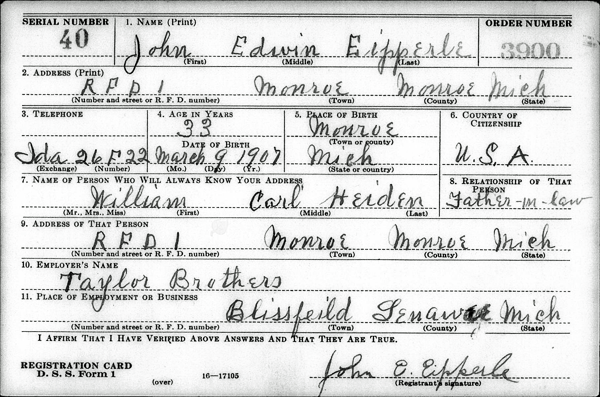 SERIAL NUMBER 1. NAME (Print) ORDER NUMBER
40 John Edwin Eipperle 3900
(First) (Middle) (Last)
2. ADDRESS (Print)
R F D 1 Monroe Monroe Mich
(Number and street or R. F. D. number) (Town) (County) (State)
3. TELEPHONE 4. AGE IN YEARS 5. PLACE OF BIRTH 6. COUNTRY OF CITIZENSHIP
33 Monroe
DATE OF BIRTH (Town or county)
Ida 26 F 22 March 9 1907 Mich U.S.A.
(Exchange) (Number) (Mo.) (Day) (Yr.) (State or country)
7. NAME OF PERSON WHO WILL ALWAYS KNOW YOUR ADDRESS 8. RELATIONSHIP OF THAT PERSON
William Carl Heiden Father-in-law
(Mr., Mrs., Miss) (First) (Middle) (Last)
9. ADDRESS OF THAT PERSON
R F D 1 Monroe Monroe Mich
(Number and street or R. F. D. number) (Town) (County) (State)
10. EMPLOYER'S NAME
Taylor Brothers
11. PLACE OF EMPLOYMENT OR BUSINESS
Blissfeild Lenawee Mich
(Number and street or R. F. D. number) (Town) (County) (State)
I AFFIRM THAT I HAVE VERIFIED ABOVE ANSWERS AND THAT THEY ARE TRUE.
REGISTRATION CARD
D. S. S. Form 1 (over) 16—17105 John E. Eipperle
(Registrant's signature)